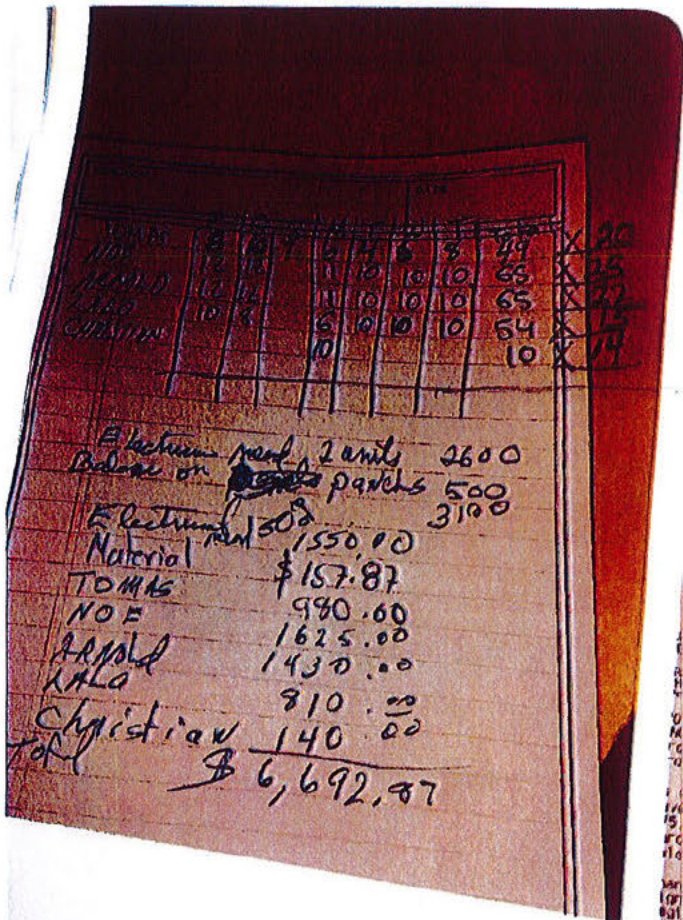 TOMAS 8 10 7 6 4 6 8 49 X 20
NOE 12 12 11 10 10 10 65 X 25
ARNOLD 12 12 11 10 10 10 65 X 22
LALO 10 8 6 10 10 10 54 X 15
CHRISTIAN 10 10 X 14
2 units 2600
Balance on panels 500
3100
1550.00
Material $157.87
TOMAS 980.00
NOE 1625.00
ARNOLd 1430.00
LALO 810.00
Christian 140.00
Total $6,692.87